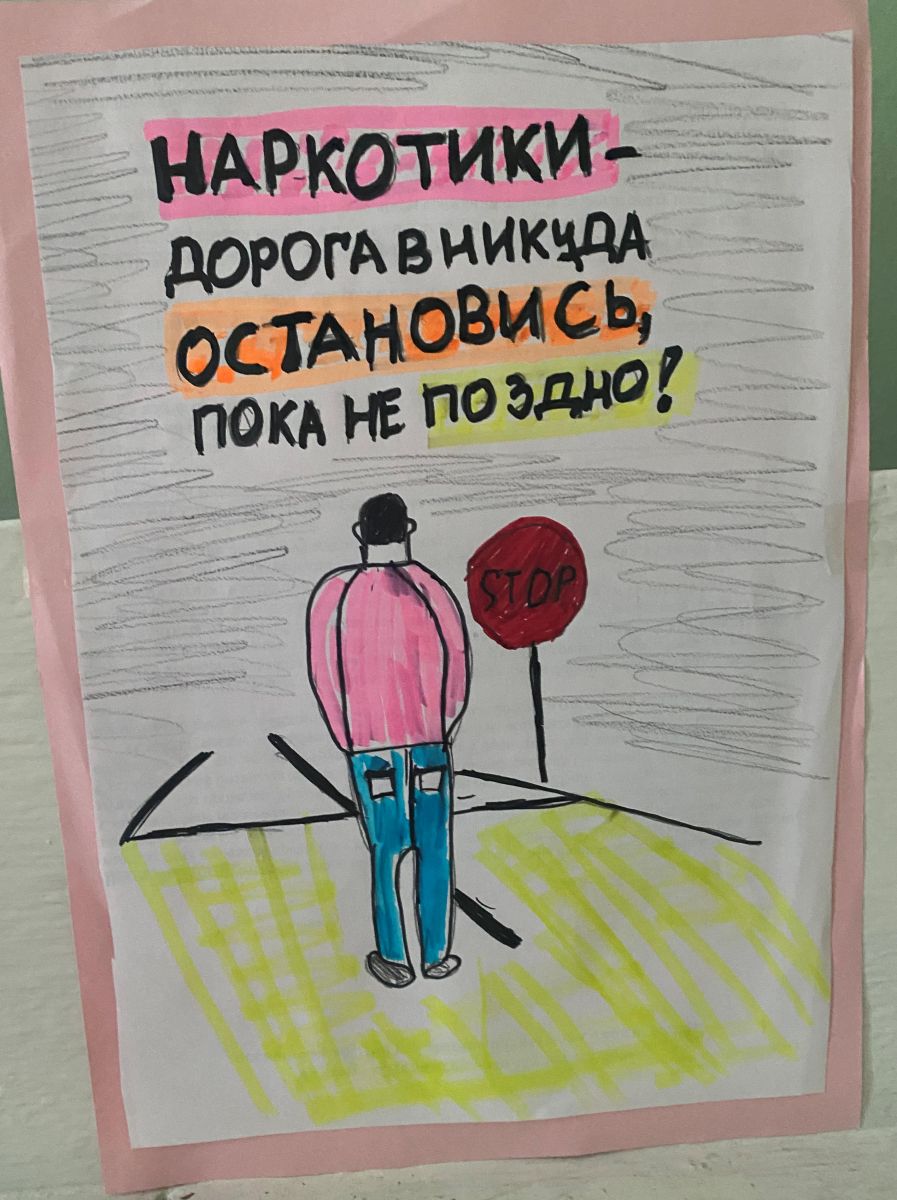 НАРКОТИКИ-
ДОРОГА В НИКУДА
ОСТАНОВИСЬ,
ПОКА НЕ ПОЗДНО!
STOP